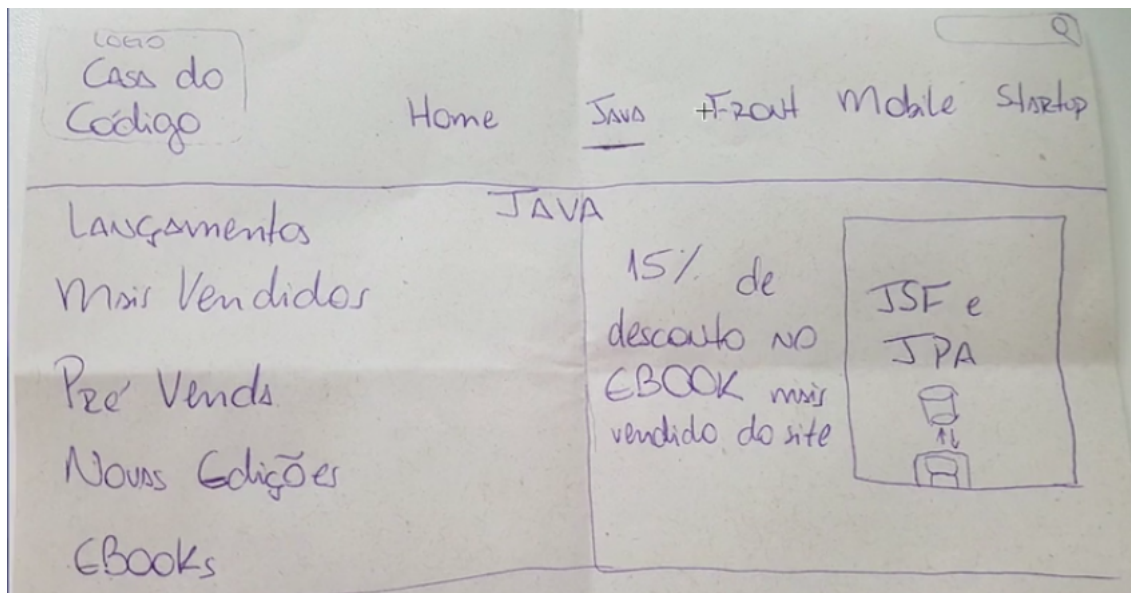 LOGO
Casa do
Código
Home Java +Front Mobile Startup
JAVA
Lançamentos
Mais Vendidos
Pré Venda
Novas Edições
EBOOKs
15% de
desconto no
EBOOK mais
vendido do site
JSF e
JPA